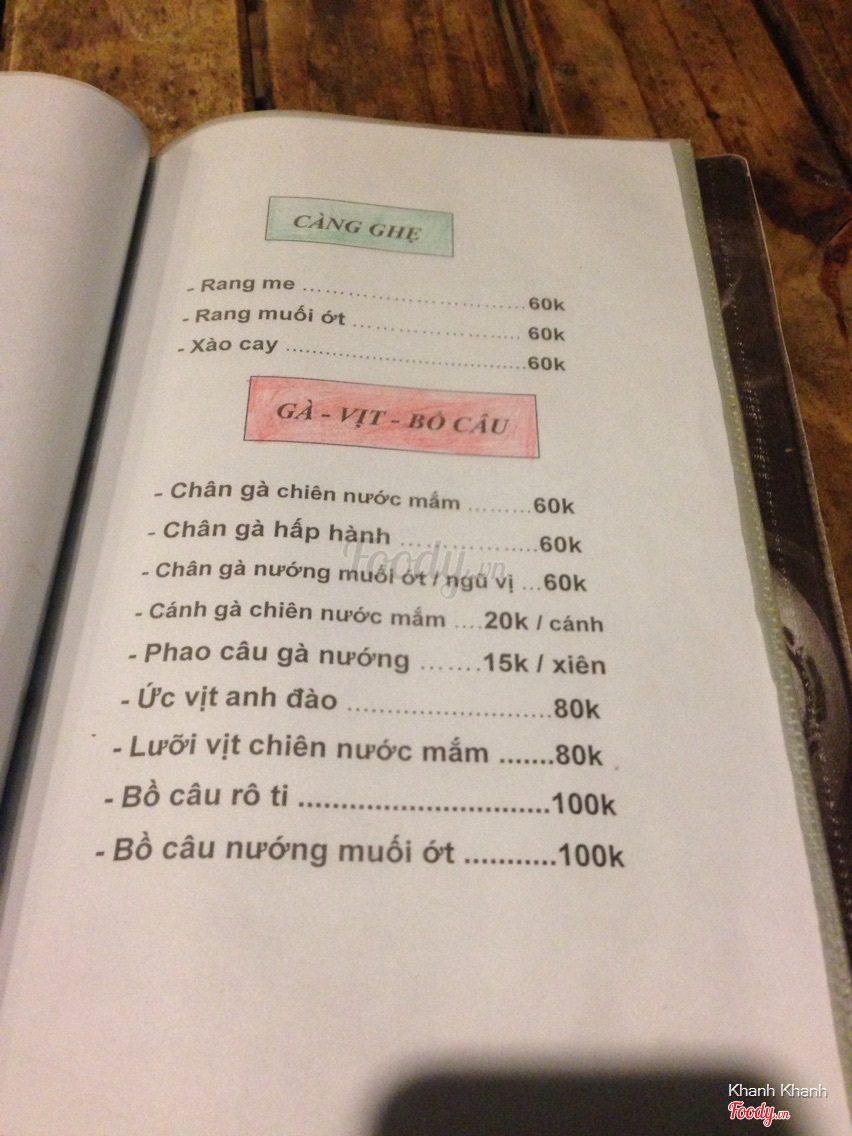 CÀNG GHẸ
- Rang me ........................ 60k
- Rang muối ớt ........................ 60k
- Xào cay ........................ 60k
GÀ - VỊT - BỒ CÂU
- Chân gà chiên nước mắm ......... 60k
- Chân gà hấp hành .................. 60k
- Chân gà nướng muối ớt / ngũ vị ...60k
- Cánh gà chiên nước mắm ....20k / cánh
- Phao câu gà nướng .......15k / xiên
- Ức vịt anh đào ........................80k
- Lưỡi vịt chiên nước mắm .......80k
- Bồ câu rô ti .............................100k
- Bồ câu nướng muối ớt ...........100k
Foody.vn
Khanh Khanh
Foody.vn